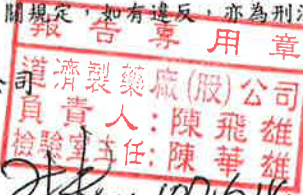 關規定，如有違反，亦為刑法
報告專用章
公司
道濟製藥廠(股)公司
負責人：陳飛雄
檢驗室主任：陳華雄